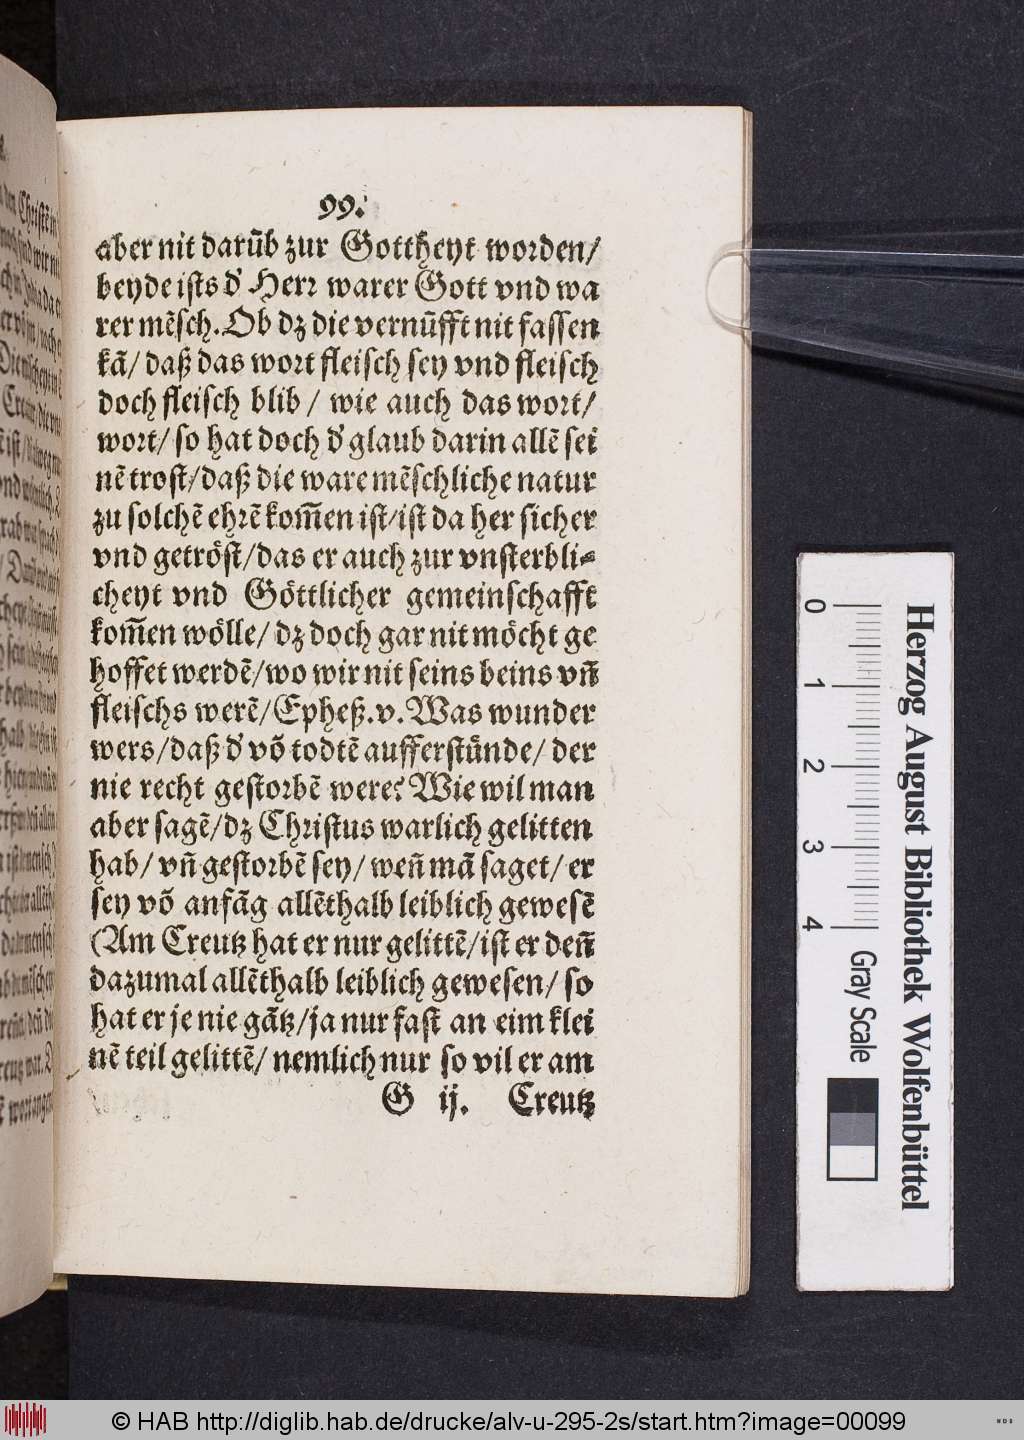 99.
aber nit darũb zur Gottheyt worden/
beyde ists d' Herr warer Gott vnd wa
rer mẽsch. Ob dz die vernũfft nit fassen
kã/ daß das wort fleisch sey vnd fleisch
doch fleisch blib / wie auch das wort/
wort/ so hat doch d' glaub darin allẽ sei
nẽ trost/ daß die ware mẽschliche natur
zu solchẽ ehrẽ kom̃en ist/ ist da her sicher
vnd getröst/ das er auch zur vnsterbli⸗
cheyt vnd Göttlicher gemeinschafft
kom̃en wölle/ dz doch gar nit möcht ge
hoffet werdẽ/ wo wir nit seins beins vñ
fleischs werẽ/ Epheß. v. Was wunder
wers/ daß d' võ todtẽ aufferstünde/ der
nie recht gestorbẽ were? Wie wil man
aber sagẽ/ dz Christus warlich gelitten
hab/ vñ gestorbẽ sey/ weñ mã saget/ er
sey võ anfãg allẽthalb leiblich gewesẽ
(Am Creutz hat er nur gelittẽ/ ist er deñ
dazumal allẽthalb leiblich gewesen/ so
hat er je nie gãtz/ ja nur fast an eim klei
nẽ teil gelittẽ/ nemlich nur so vil er am
G ij. Creutz
0 1 2 3 4
Herzog August Bibliothek Wolfenbüttel
Gray Scale
© HAB http://diglib.hab.de/drucke/alv-u-295-2s/start.htm?image=00099